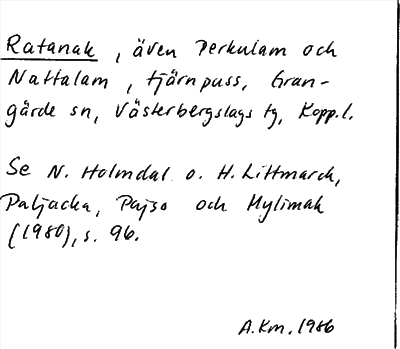 Ratanak, även Perkulam och
Nattalam, tjärnpuss, Gran-
gärde sn, Västerbergslags tg, Kopp.l.
Se N. Holmdal o. H. Littmarck,
Paljacka, Pajso och Mylimak
(1980), s. 96.
A.Km. 1986